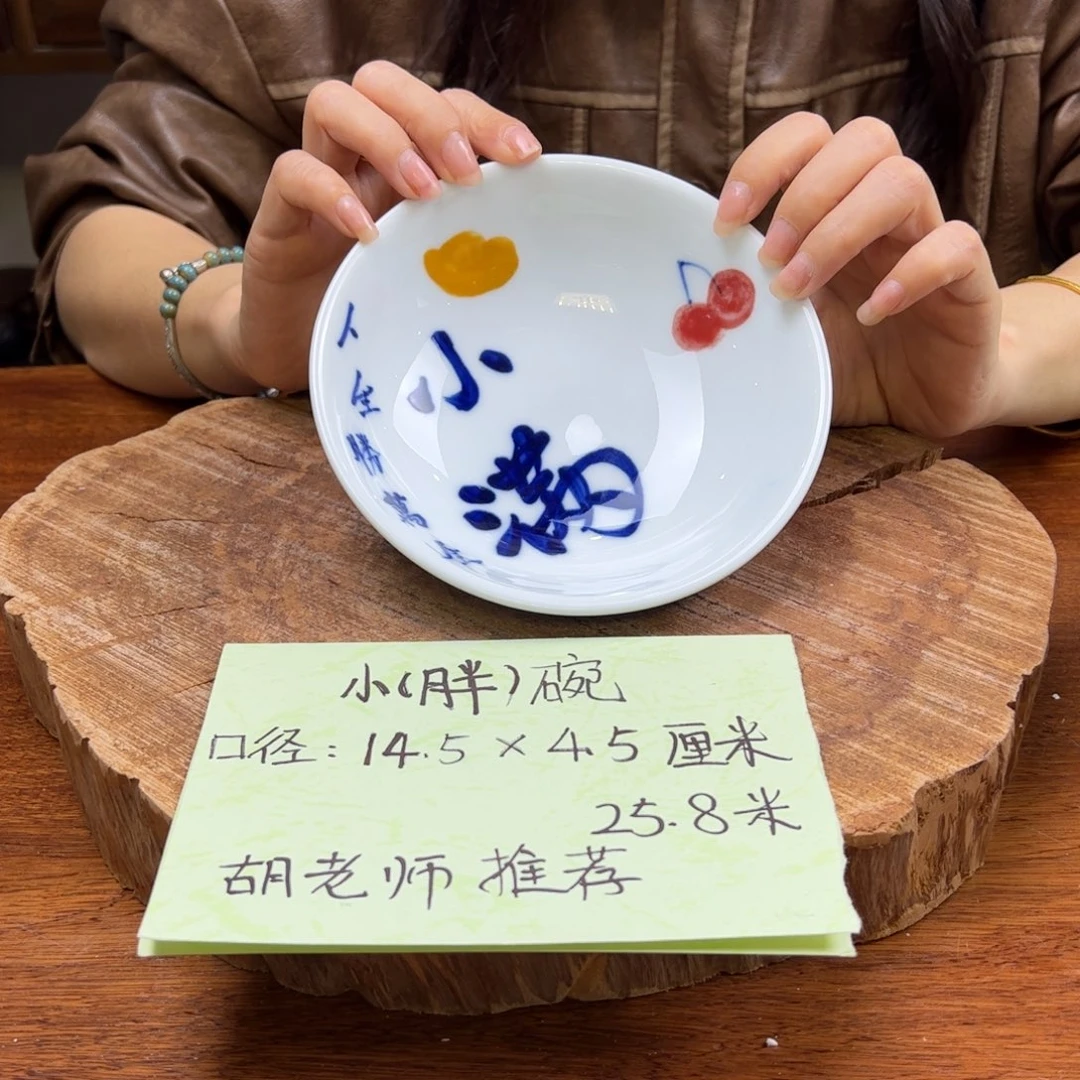 小满
人生勝萬全
小(胖)碗
口径：14.5×4.5厘米
25.8米
胡老师 推荐